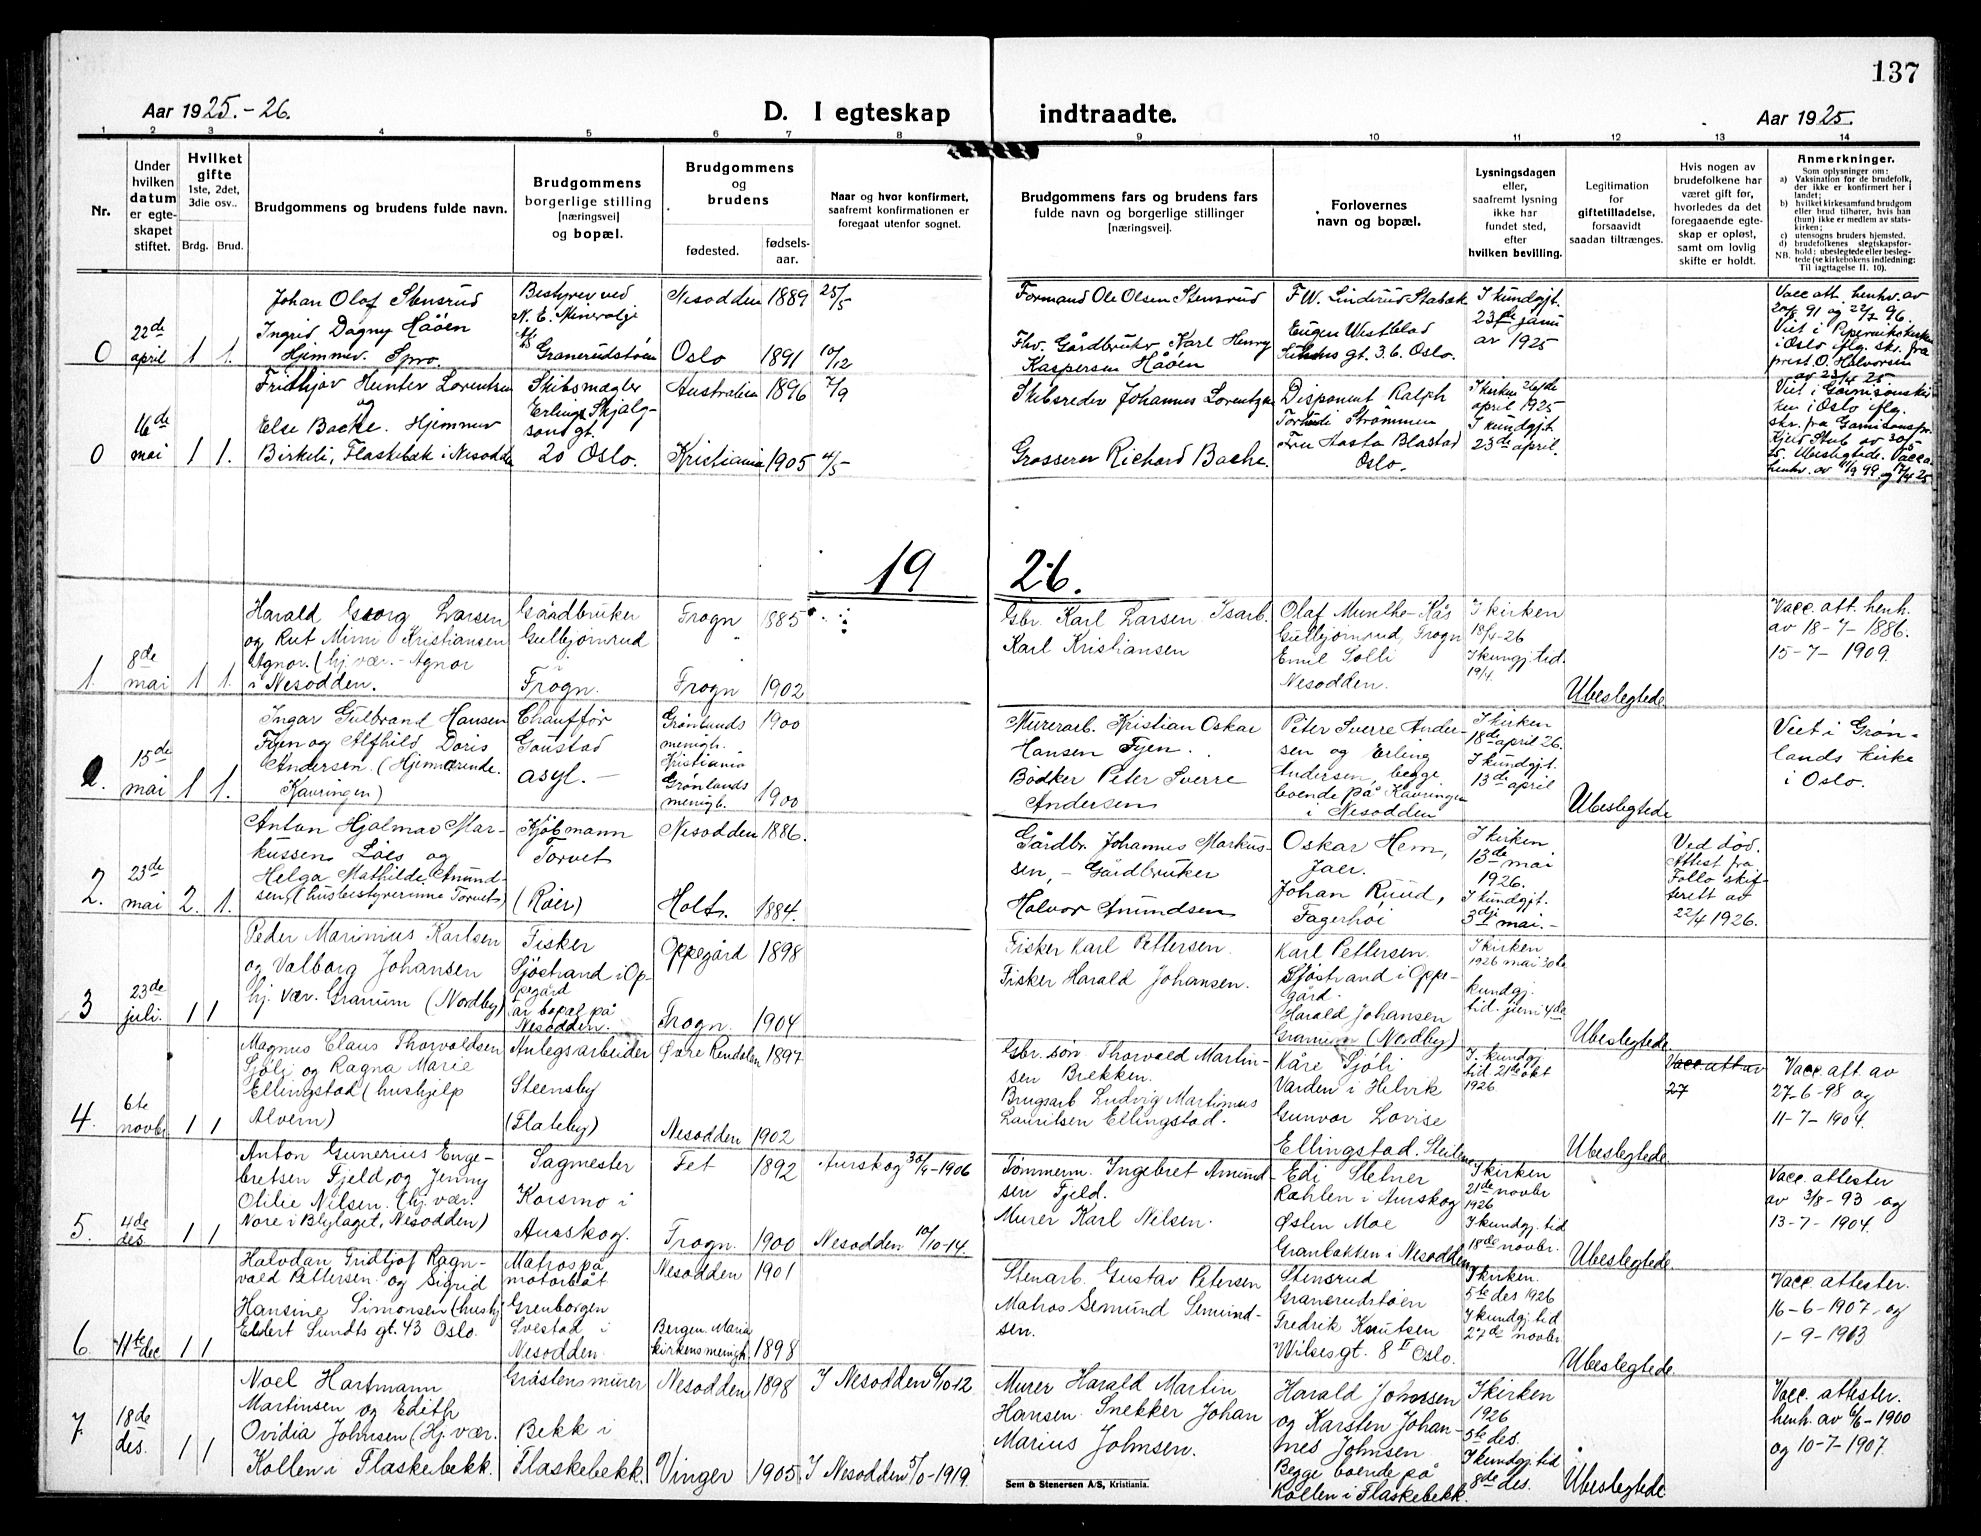 137
Aar 1925.-26.
D. I egteskap indtraadte.
Aar 1925.
1 2 3 4 5 6 7 8 9 10 11 12 13 14
Nr.
Under hvilken datum er egteskapet stiftet.
Hvilket gifte
1ste, 2det, 3die osv..
Brdg. Brud.
Brudgommens og brudens fulde navn.
Brudgommens borgerlige stilling [næringsvei] og bopæl.
Brudgommens og brudens
fødested. fødsels-aar.
Naar og hvor konfirmert, saafremt konfirmationen er foregaat utenfor sognet.
Brudgommens fars og brudens fars fulde navn og borgerlige stillinger [næringsvei].
Forlovernes navn og bopæl.
Lysningsdagen eller, saafremt lysning ikke har fundet sted, efter hvilken bevilling.
Legitimation for giftetilladelse, forsaavidt saadan tiltrænges.
Hvis nogen av brudefolkene har været gift før, hvorledes da det foregaaende egteskap er opløst, samt om lovlig skifte er holdt.
Anmerkninger.
Som oplysninger om:
a) Vaksination for de brudefolk, der ikke er konfirmert her i landet;
b) hvilket kirkesamfund brudgom eller brud tilhører, hvis han (hun) ikke er medlem av statskirken;
c) utensogns bruders hjemsted.
d) brudefolkenes slegtskapsforhold: ubeslegtede eller beslegtede (se kirkebokens indledning:
NB. Til iagttagelse II. 10).
0 22de april 1 1.
Johan Olof Stensrud
Ingrid Dagny Håöen
Hjemmev. Spro.
Bestyrer ved
N. E. Mineralje
Granerudstøen
Nesodden 1889 25/5
Oslo 1891 10/12
Formand Ole Olsen Stensrud
Fhv. Gårdbruker Karl Henry
Kaspersen Håöen
F.W. Linderud Stabæk
Eugen Westblad
gt. 36. Oslo.
I kundgjt.
23de janu
ar 1925
Vacc att. henhv. av
91 og 96.
Viet i Pipervikskirken
i Oslo flg. skr. fra
prest O. Halvorsen
av 23/4 25.
0 16de mai 1 1.
Fridtjov Hunter Lorentsen
og
Else Bache. Hjemmev
Birkeli, Flaskebæk i Nesodden
Skibsmægler
Erling Skjalg-
sons gt.
20 Oslo.
Australien 1896 7/9
Kristiania 1905 4/5
Skibsreder Johannes Lorentzen
Grosserer Richard Bache.
Disponent Ralph
Strömmen
Fru Hasta Blastad
Oslo.
I kirken 26de
april 1925
I kundgjt.
23de april.
Viet i Garnisonskir
ken i Oslo flg.
skr. fra Garnisonspr.
Kjeld Stub av 30/5
25. Ubeslegtede. Vacca.
henhv. av 11/9 99 og 17/4 25
1926.
1 8de mai 1 1.
Harald Georg Larsen
og Rut Mimi Kristiansen
Agnor. (hj. vær. - Agnor
i Nesodden.
Gårdbruker
Gulbjørnrud
Frogn.
Frogn 1885
Frogn 1902
Gbr. Karl Larsen Isarb.
Karl Kristiansen
Olaf Munthe-Kås
Gulbjørnrud, Frogn
Emil Solli
Nesodden.
I kirken
18/4-26
I kungj. tid.
19/4.
Ubeslegtede
Vacc. att. henh.
av 18-7-1886.
15-7-1909.
2. 15de mai 1 1.
Ingar Gulbrand Hansen
Fjen og Alfhild Doris
Andersen. (Hjemværende.
Kavringen)
Chauffør
Gaustad
asyl. -
Grønlands
menigh.
Kristiania 1900
Grønlands
menigh. 1900
Murerarb. Kristian Oskar
Hansen Fjen.
Bødker Peter Sverre
Andersen
Peter Sverre Ander-
sen og Erling
Andersen, begge
boende på Kavringen
i Nesodden
I kirken
18de april 26.
I kundgjt.
13de april
Ubeslegtede
Viet i Grøn-
lands kirke
i Oslo.
2. 23de mai 2. 1.
Anton Hjalmar Mar-
kussen Löes og
Helga Mathilde Amund-
sen, (husbestyrerinne Torvet)
Kjøbmann
Torvet
(Röer)
Nesodden 1886.
Holt. 1884.
Gårdbr. Johannes Markus-
sen, - Gårdbruker
Halvor Amundsen
Oskar Hem,
Jaer.
Johan Ruud,
Fagerhøi
I kirken
13de mai
1926.
I kundgjt.
3dje mai. -
Ved död.
Attest fra
Follo skif-
terett av
22/4 1926.
3 23de juli. 1 1
Peder Marinius Karlsen
og Valborg Johansen
hj. vær. Granum (Nordby)
Fisker
Sjöstrand i Op-
pegård
av bopæl på
Nesodden.
Oppegård 1898
Frogn. 1904
Fisker Karl Pettersen.
Fisker Harald Johansen.
Karl Pettersen.
Sjöstrand i Oppe-
gård.
Harald Johansen
Granum (Nordby)
I kirken
1926 mai 30de
kundgj.
tid. juni 4de
Ubeslegtede
4. 6te novbr 1 1
Magnus Claus Thorvaldsen
Sjöli og Ragna Marie
Ellingstad (hushjelp
Alvern)
Anlegsarbeider
Steensby
(Flateby)
Øvre Rendalen 1897
Nesodden 1902
Gbr. sön Thorvald Martin-
sen Brekken.
Brugsarb Ludvig Martinius
Lauritsen Ellingstad.
Kåre Sjöli
Varden i Helvik
Gunvor Lovise
Ellingstad. Steilene
I. kundgj.
tid. 21de okt
1926
Ubeslegtede
Vacc. att av
27
Vacc. att av
27-6-98 og
11-7-1904.
5. 4de des. 1 1
Anton Gunerius Enge-
bretsen Fjeld, og Jenny
Otilie Nilsen. (hj. vær.
Nore i Blylaget, Nesodden)
Sagmester
Korsmo i
Aurskog.
Fet 1892 Aurskog 30/9-1906
Frogn. 1900 Nesodden 10/10-14.
Tømmerm. Ingebret Amund-
sen Fjeld.
Murer Karl Nilsen.
Edi Stener
Ræhlen i Aurskog
Østen Moe
Granbakken i Nesodden
I kirken
21de novbr
1926
I kundgj. tid
18de novbr.
Ubeslegtede
Vacc. attester
av 3/8-93 og
13-7-1904.
6. 11te dec 1 1
Halvdan Fridtjof Ragn-
vald Pettersen. og Sigrid
Hansine Simonsen (hushj
Eilert Sundts gt. 43 Oslo.
Matros på
motorbåt
Grenborgen
Svestad i
Nesodden.
Nesodden 1901
Bergen. Maria
kirkens menigh. 1898
Stenarb. Gustav Petersen
Matros Semund Semund-
sen.
Stensrud
Granerudstøen
Fredrik Knutsen
Wilsesgt. 8 I Oslo.
I kirken.
5te des 1926
I kundgj. tid
27de novbr.
Ubeslegtede
Vacc. attester.
16-6-1907. og
1-9-1913
7. 18de des. 1 1
Noel Hartmann
Martinsen og Edith
Ovidia Johnsen (Hj. vær.
Kollen i Flaskebekk.
Gråstensmurer
Bekk i
Flaskebekk.
Nesodden 1898 I Nesodden 6/10-12
Vinger 1905. I Nesodden 5/10-1919.
Murer Harald Martin
Hansen. Snekker Johan
Marius Johnsen.
Harald Johnssen
og Karsten Johan-
nes Johnsen
Begge boende på
Kollen i Flaskebekk.
I kirken
1926
5te des.
I kundgj. tid
8de des.
Ubeslegtede
Vacc. attester.
henh. av 6/6-1900
og 10-7-1907.
Sem & Stenersen A/S, Kristiania.